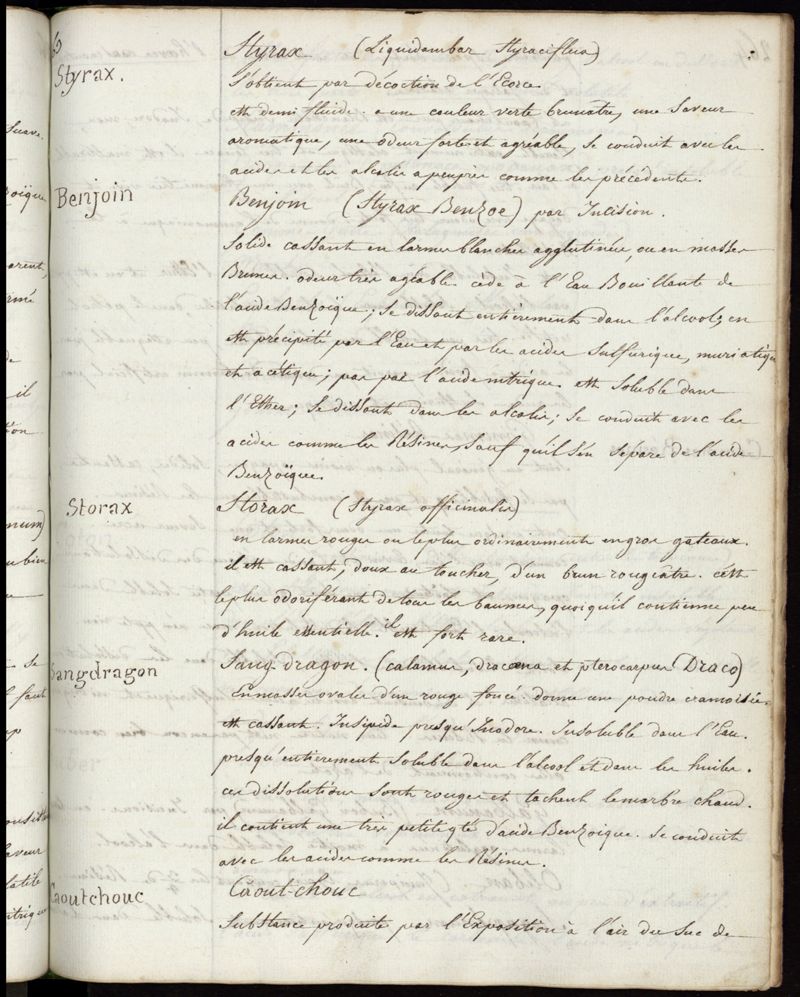 Styrax.
Styrax (Liquidambar Styraciflua)
S'obtient par décoction de l'Ecorce
est demi fluide. a une couleur verte brunatre, une Saveur
aromatique, une odeur forte et agréable, Se conduit avec les
acides et les alcalis apeuprès comme les précédents.
Benjoin
Benjoin (Styrax Benzoe) par Incision.
Solide cassant en larmes blanches agglutinées, ou en masses
Brunes. odeur très agéable. cède à l'Eau Bouillante de
l'acide Benzoïque; Se dissout entièrement dans l'alcool; en
est précipité par l'Eau et par les acides Sulfurique, muriatique
et acétique; pas par l'acide nitrique. est Soluble dans
l'Ether; Se dissout dans les alcalis; Se conduit avec les
acides comme les Résines, Sauf qu'il s'en Sépare de l'acide
Benzoïque.
Storax
Storax (Styrax officinalis)
en larmes rouges ou le plus ordinairement en gros gateaux.
il est cassant, doux au toucher, d'un brun rougeâtre. c'est
le plus odoriférant de tous les baumes, quoiqu'il contienne peu
d'huile essentielle. il est fort rare.
Sangdragon
Sang-dragon. (calamus, dracæna et pterocarpus Draco)
En masses ovales d'un rouge foncé. donne une poudre cramoisie.
est cassant. Insipide presqu'Inodore. Insoluble dans l'Eau.
presqu'entierement Soluble dans l'alcool et dans les huiles.
ces dissolutions Sont rouges et tachent le marbre chaud.
il contient une très petite qté d'acide Benzoique. Se conduit
avec les acides comme les Résines.
Caoutchouc
Caout-chouc
Substance produite par l'Exposition à l'air du Suc de
Suave.
zoïque
arent,
rmé
de
il
on
num)
u bien
Se
l faut
aveur
latile
itrique